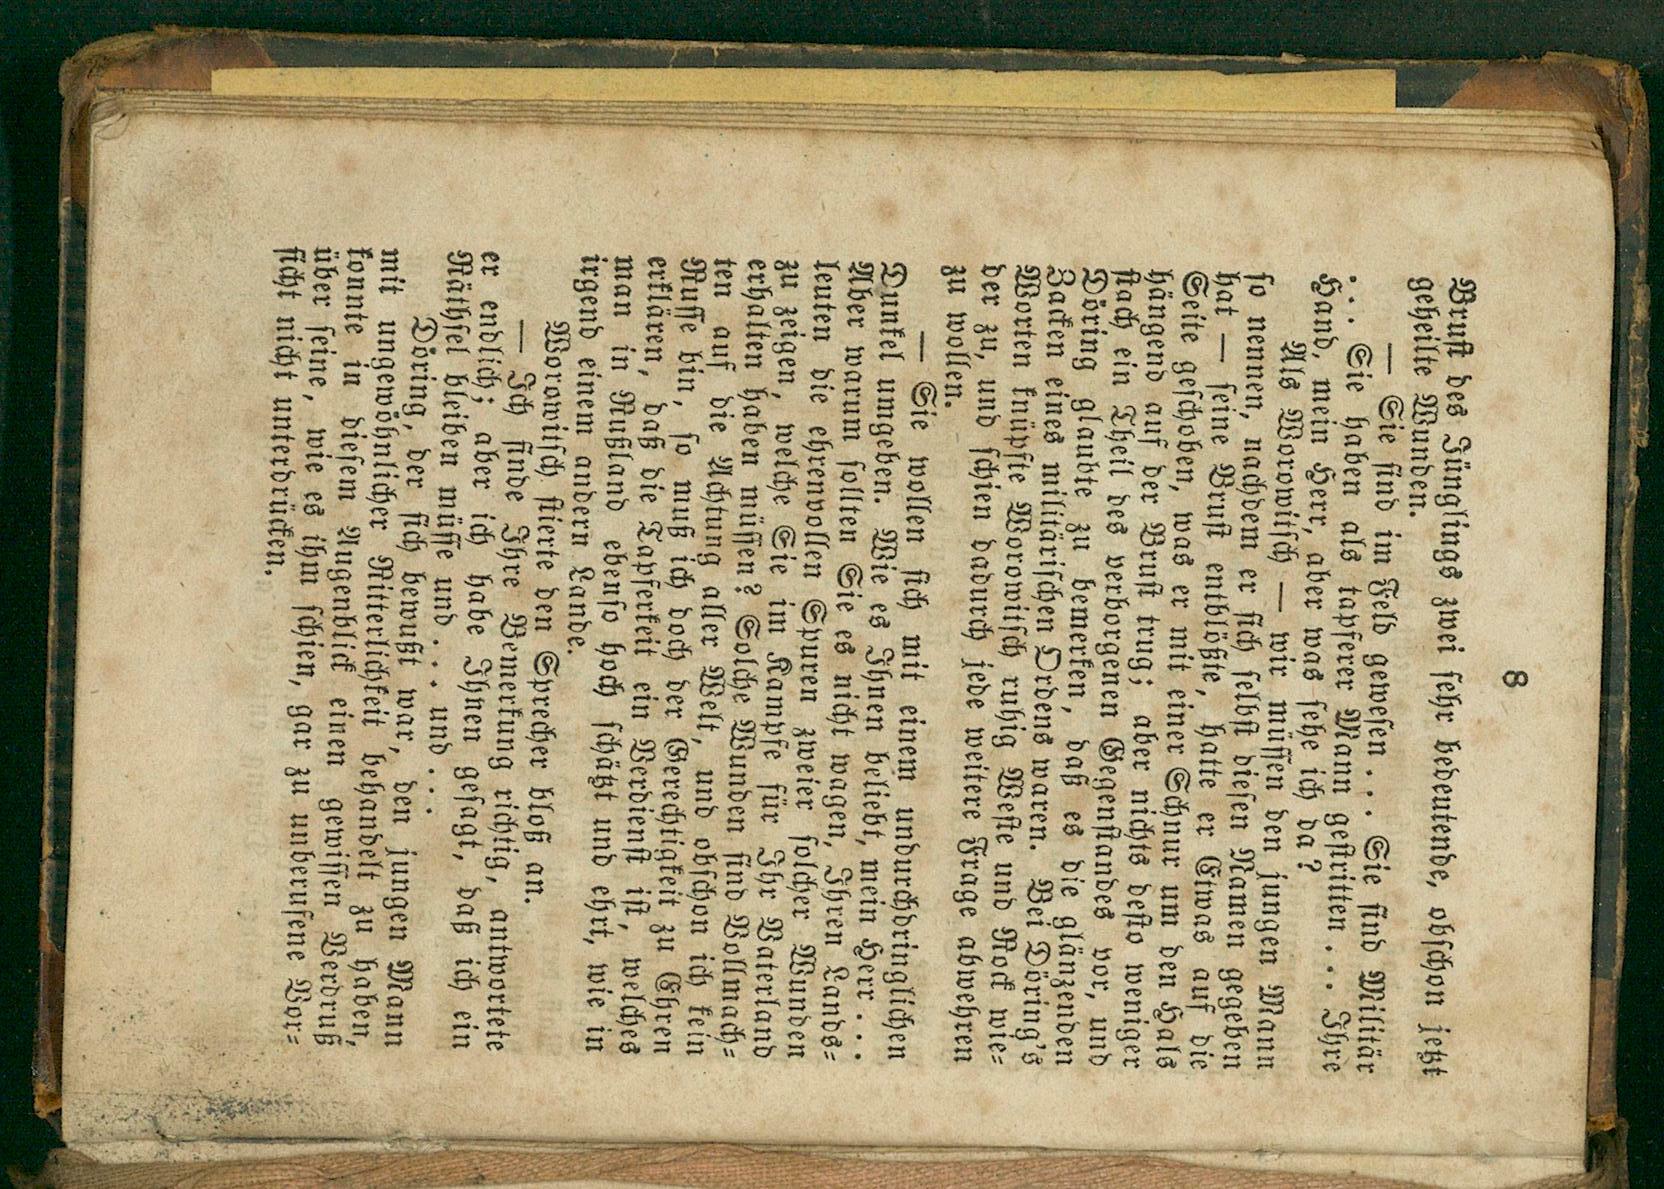 8
Brust des Jünglings zwei sehr bedeutende, obschon jetzt
geheilte Wunden.
— Sie sind im Feld gewesen . . . Sie sind Militär
. . . Sie haben als tapferer Mann gestritten . . . Ihre
Hand, mein Herr, aber was sehe ich da?
Als Worowitsch — wir müssen den jungen Mann
so nennen, nachdem er sich selbst diesen Namen gegeben
hat — seine Brust entblößte, hatte er Etwas auf die
Seite geschoben, was er mit einer Schnur um den Hals
hängend auf der Brust trug; aber nichts desto weniger
stach ein Theil des verborgenen Gegenstandes vor, und
Döring glaubte zu bemerken, daß es die glänzenden
Zacken eines militärischen Ordens waren. Bei Döring's
Worten knüpfte Worowitsch ruhig Weste und Rock wie-
der zu, und schien dadurch jede weitere Frage abwehren
zu wollen.
— Sie wollen sich mit einem undurchdringlichen
Dunkel umgeben. Wie es Ihnen beliebt, mein Herr . . .
Aber warum sollten Sie es nicht wagen, Ihren Lands-
leuten die ehrenvollen Spuren zweier solcher Wunden
zu zeigen, welche Sie im Kampfe für Ihr Vaterland
erhalten haben müssen? Solche Wunden sind Vollmach-
ten auf die Achtung aller Welt, und obschon ich kein
Russe bin, so muß ich doch der Gerechtigkeit zu Ehren
erklären, daß die Tapferkeit ein Verdienst ist, welches
man in Rußland ebenso hoch schätzt und ehrt, wie in
irgend einem andern Lande.
Worowitsch stierte den Sprecher bloß an.
— Ich finde Ihre Bemerkung richtig, antwortete
er endlich; aber ich habe Ihnen gesagt, daß ich ein
Räthsel bleiben müsse und . . . und . . .
Döring, der sich bewußt war, den jungen Mann
mit ungewöhnlicher Ritterlichkeit behandelt zu haben,
konnte in diesem Augenblick einen gewissen Verdruß
über seine, wie es ihm schien, gar zu unberufene Vor-
sicht nicht unterdrücken.